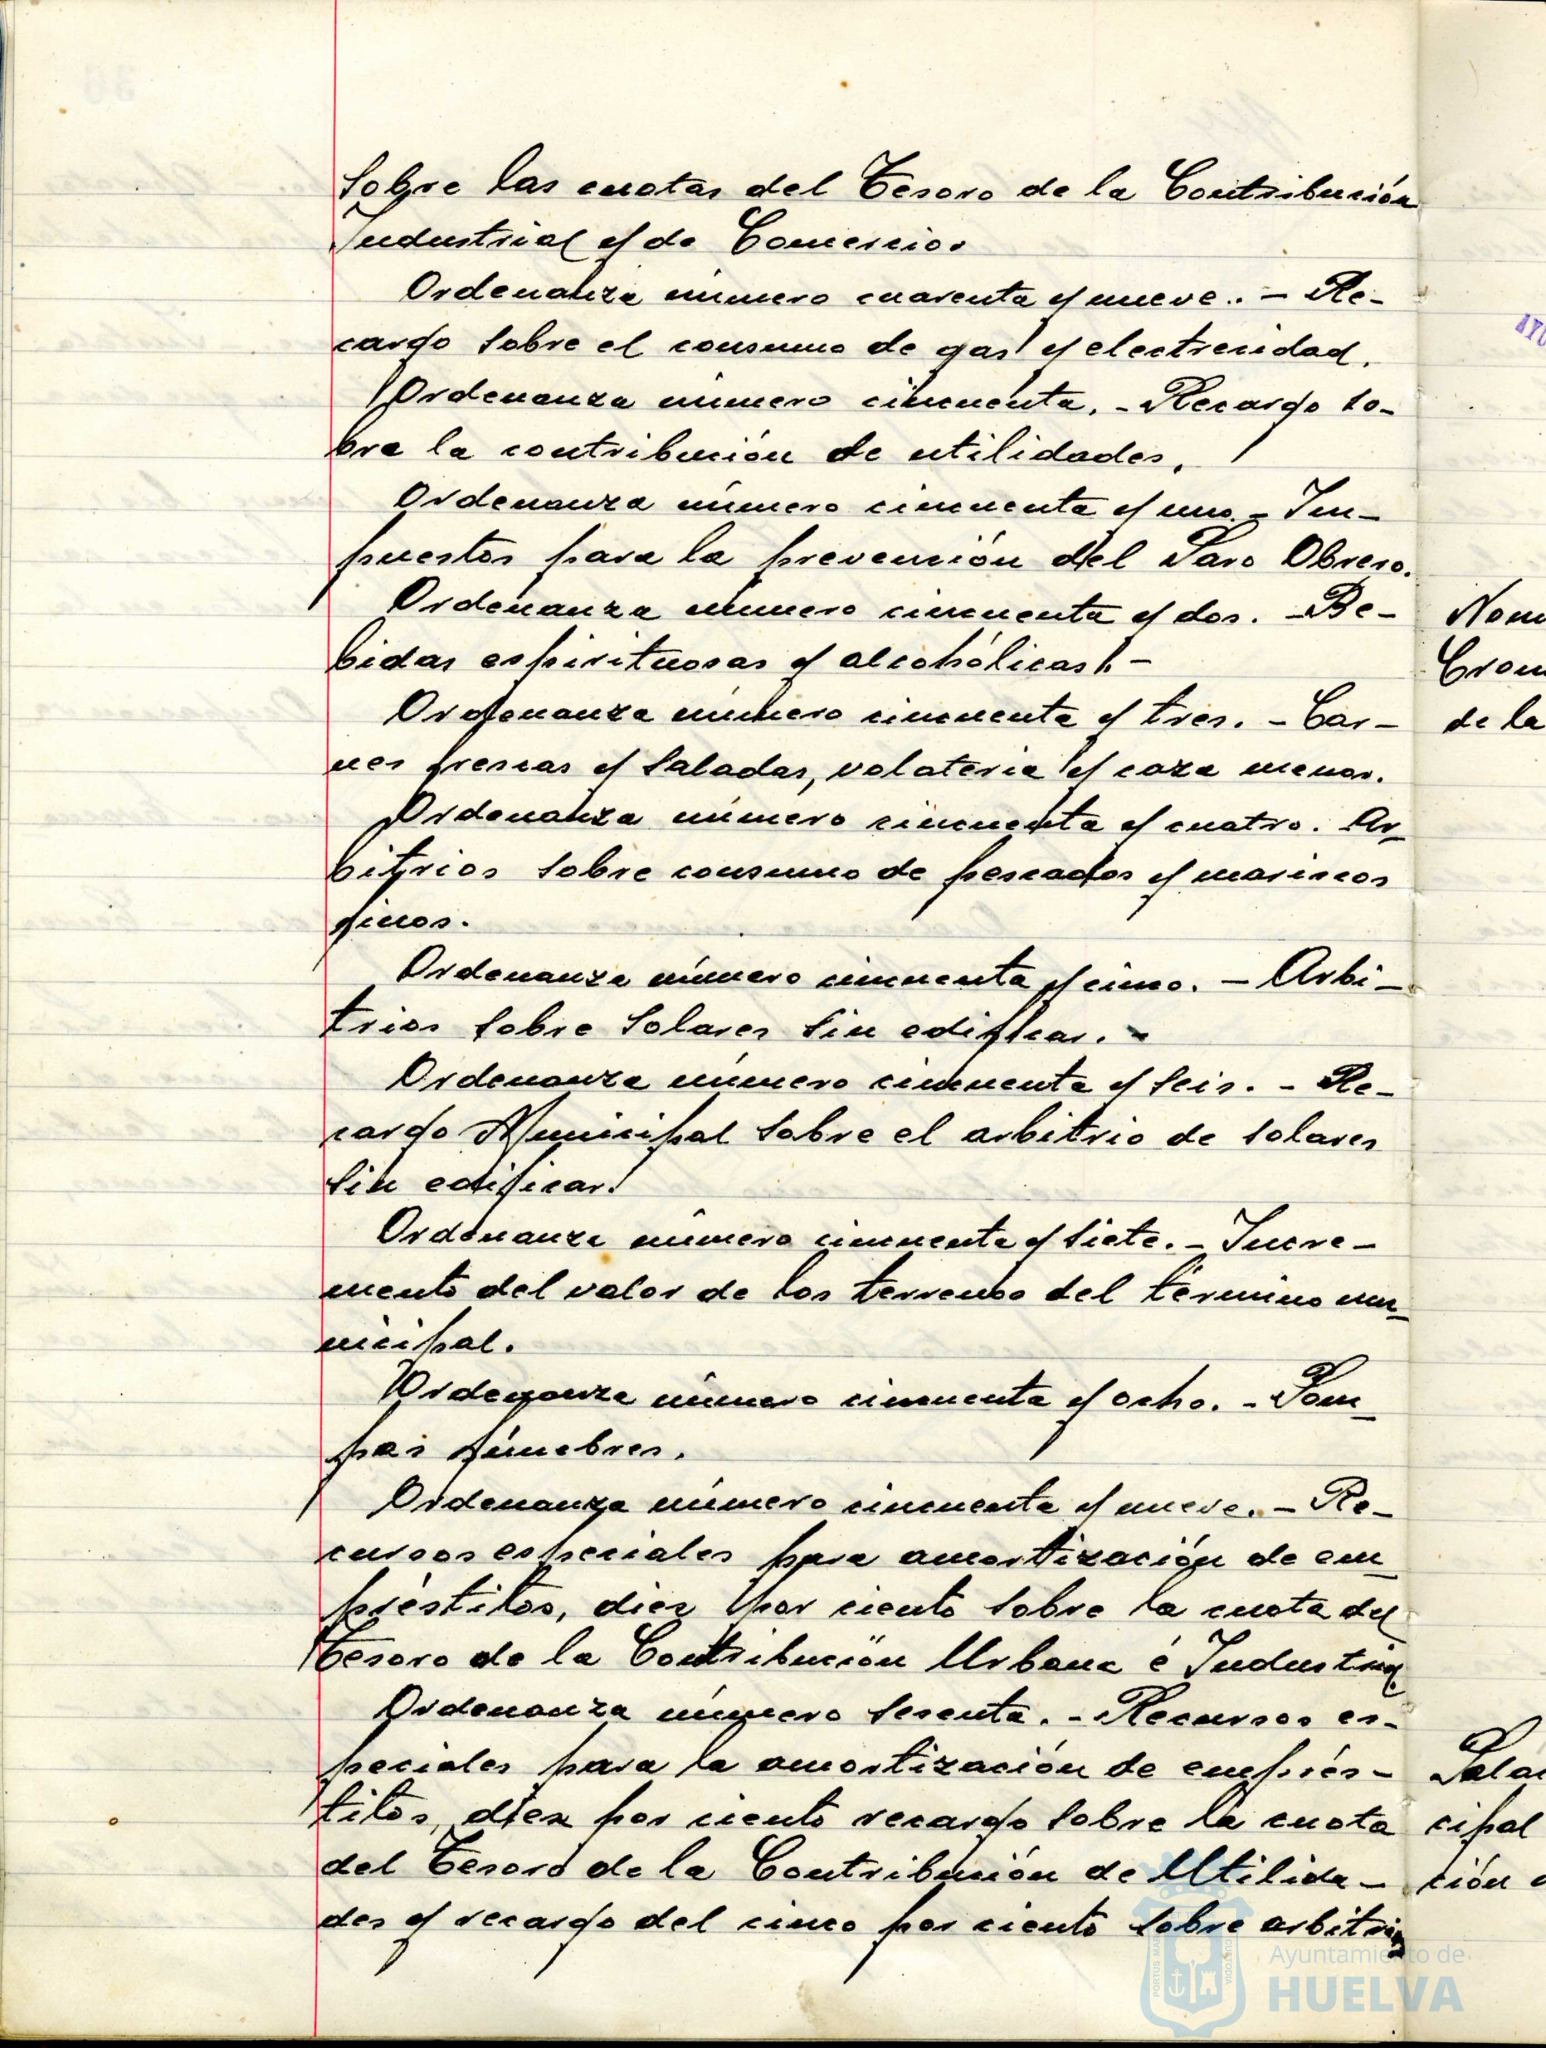 sobre las cuotas del Tesoro de la Contribución
Industrial y de Comercio.
Ordenanza número cuarenta y nueve. - Re-
cargo sobre el consumo de gas y electricidad.
Ordenanza número cincuenta. - Recargo so-
bre la contribución de utilidades.
Ordenanza número cincuenta y uno - Im-
puestos para la prevención del Paro Obrero.
Ordenanza número cincuenta y dos. - Be-
bidas espirituosas y alcohólicas. -
Ordenanza número cincuenta y tres. - Car-
nes frescas y saladas, volateria y caza menor.
Ordenanza número cincuenta y cuatro. Ar-
bitrios sobre consumo de pescados y mariscos
finos.
Ordenanza número cincuenta y cinco. - Arbi-
trios sobre solares sin edificar. -
Ordenanza número cincuenta y seis. - Re-
cargo Municipal sobre el arbitrio de solares
sin edificar.
Ordenanza número cincuenta y siete. - Incre-
mento del valor de los terrenos del término mu-
nicipal.
Ordenanza número cincuenta y ocho. - Pom-
pas fúnebres.
Ordenanza número cincuenta y nueve. - Re-
cursos especiales para amortización de em-
préstitos, diez por ciento sobre la cuota del
Tesoro de la Contribución Urbana é Industrial
Ordenanza número sesenta. - Recursos es-
peciales para la amortización de emprés-
titos, diez por ciento recargo sobre la cuota
del Tesoro de la Contribución de Utilida-
des y recargo del cinco por ciento sobre arbitrios
Nom
Cron
de la
cipal
ción
Ayuntamiento de
HUELVA